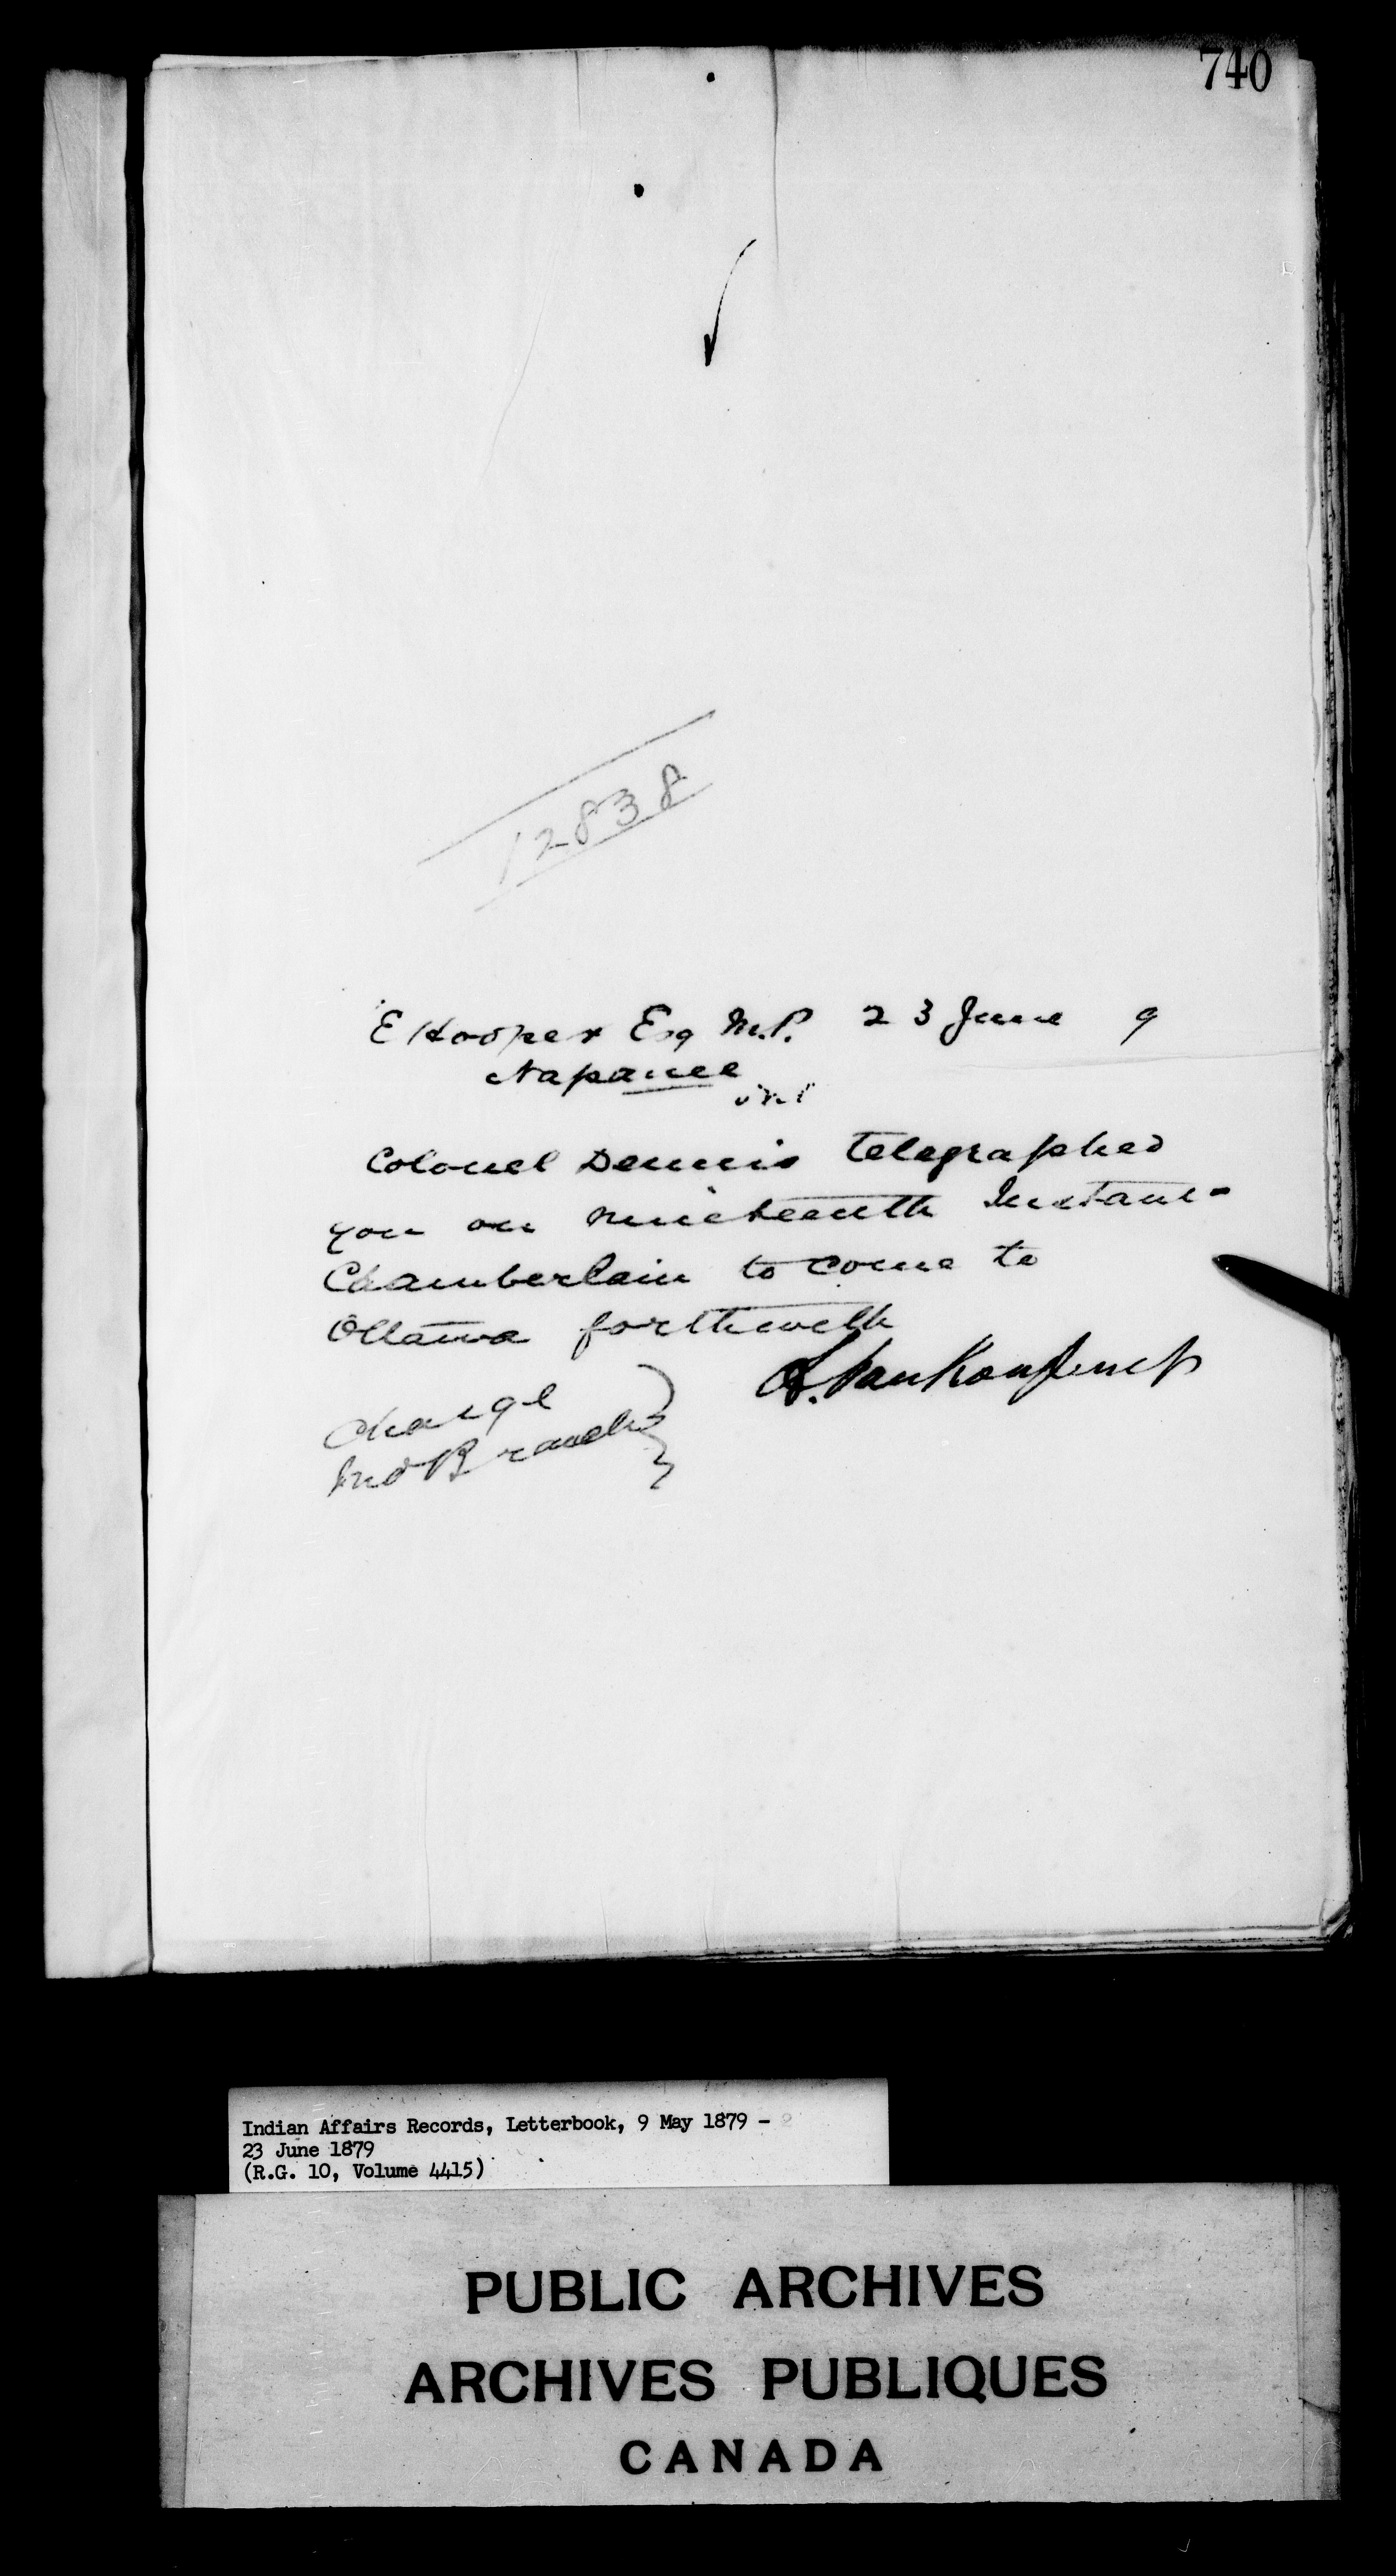 740
12838
E Hooper Esq M.P. 23 June 9
Napanee
Ont
Colonel Dennis telegraphed
you on nineteenth Instant-
Chamberlain to come to
Ottawa forthwith
L. VanKoughnet
Charge
Ind Branch
Indian Affairs Records, Letterbook, 9 May 1879 - 2
23 June 1879
(R.G. 10, Volume 4415)
PUBLIC ARCHIVES
ARCHIVES PUBLIQUES
CANADA